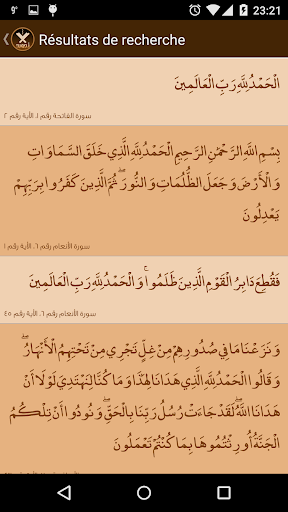 9° 23:21
Résultats de recherche
الْحَمْدُ لِلَّهِ رَبِّ الْعَالَمِينَ
سورة الفاتحة رقم ١، الآية رقم ٢
بِسْمِ اللَّهِ الرَّحْمَٰنِ الرَّحِيمِ الْحَمْدُ لِلَّهِ الَّذِي خَلَقَ السَّمَاوَاتِ
وَالْأَرْضَ وَجَعَلَ الظُّلُمَاتِ وَالنُّورَ ۖ ثُمَّ الَّذِينَ كَفَرُوا بِرَبِّهِمْ
يَعْدِلُونَ
سورة الأنعام رقم ٦، الآية رقم ١
فَقُطِعَ دَابِرُ الْقَوْمِ الَّذِينَ ظَلَمُوا ۚ وَالْحَمْدُ لِلَّهِ رَبِّ الْعَالَمِينَ
سورة الأنعام رقم ٦، الآية رقم ٤٥
وَنَزَعْنَا مَا فِي صُدُورِهِمْ مِنْ غِلٍّ تَجْرِي مِنْ تَحْتِهِمُ الْأَنْهَارُ ۖ
وَقَالُوا الْحَمْدُ لِلَّهِ الَّذِي هَدَانَا لِهَٰذَا وَمَا كُنَّا لِنَهْتَدِيَ لَوْلَا أَنْ
هَدَانَا اللَّهُ ۖ لَقَدْ جَاءَتْ رُسُلُ رَبِّنَا بِالْحَقِّ ۖ وَنُودُوا أَنْ تِلْكُمُ
الْجَنَّةُ أُورِثْتُمُوهَا بِمَا كُنْتُمْ تَعْمَلُونَ